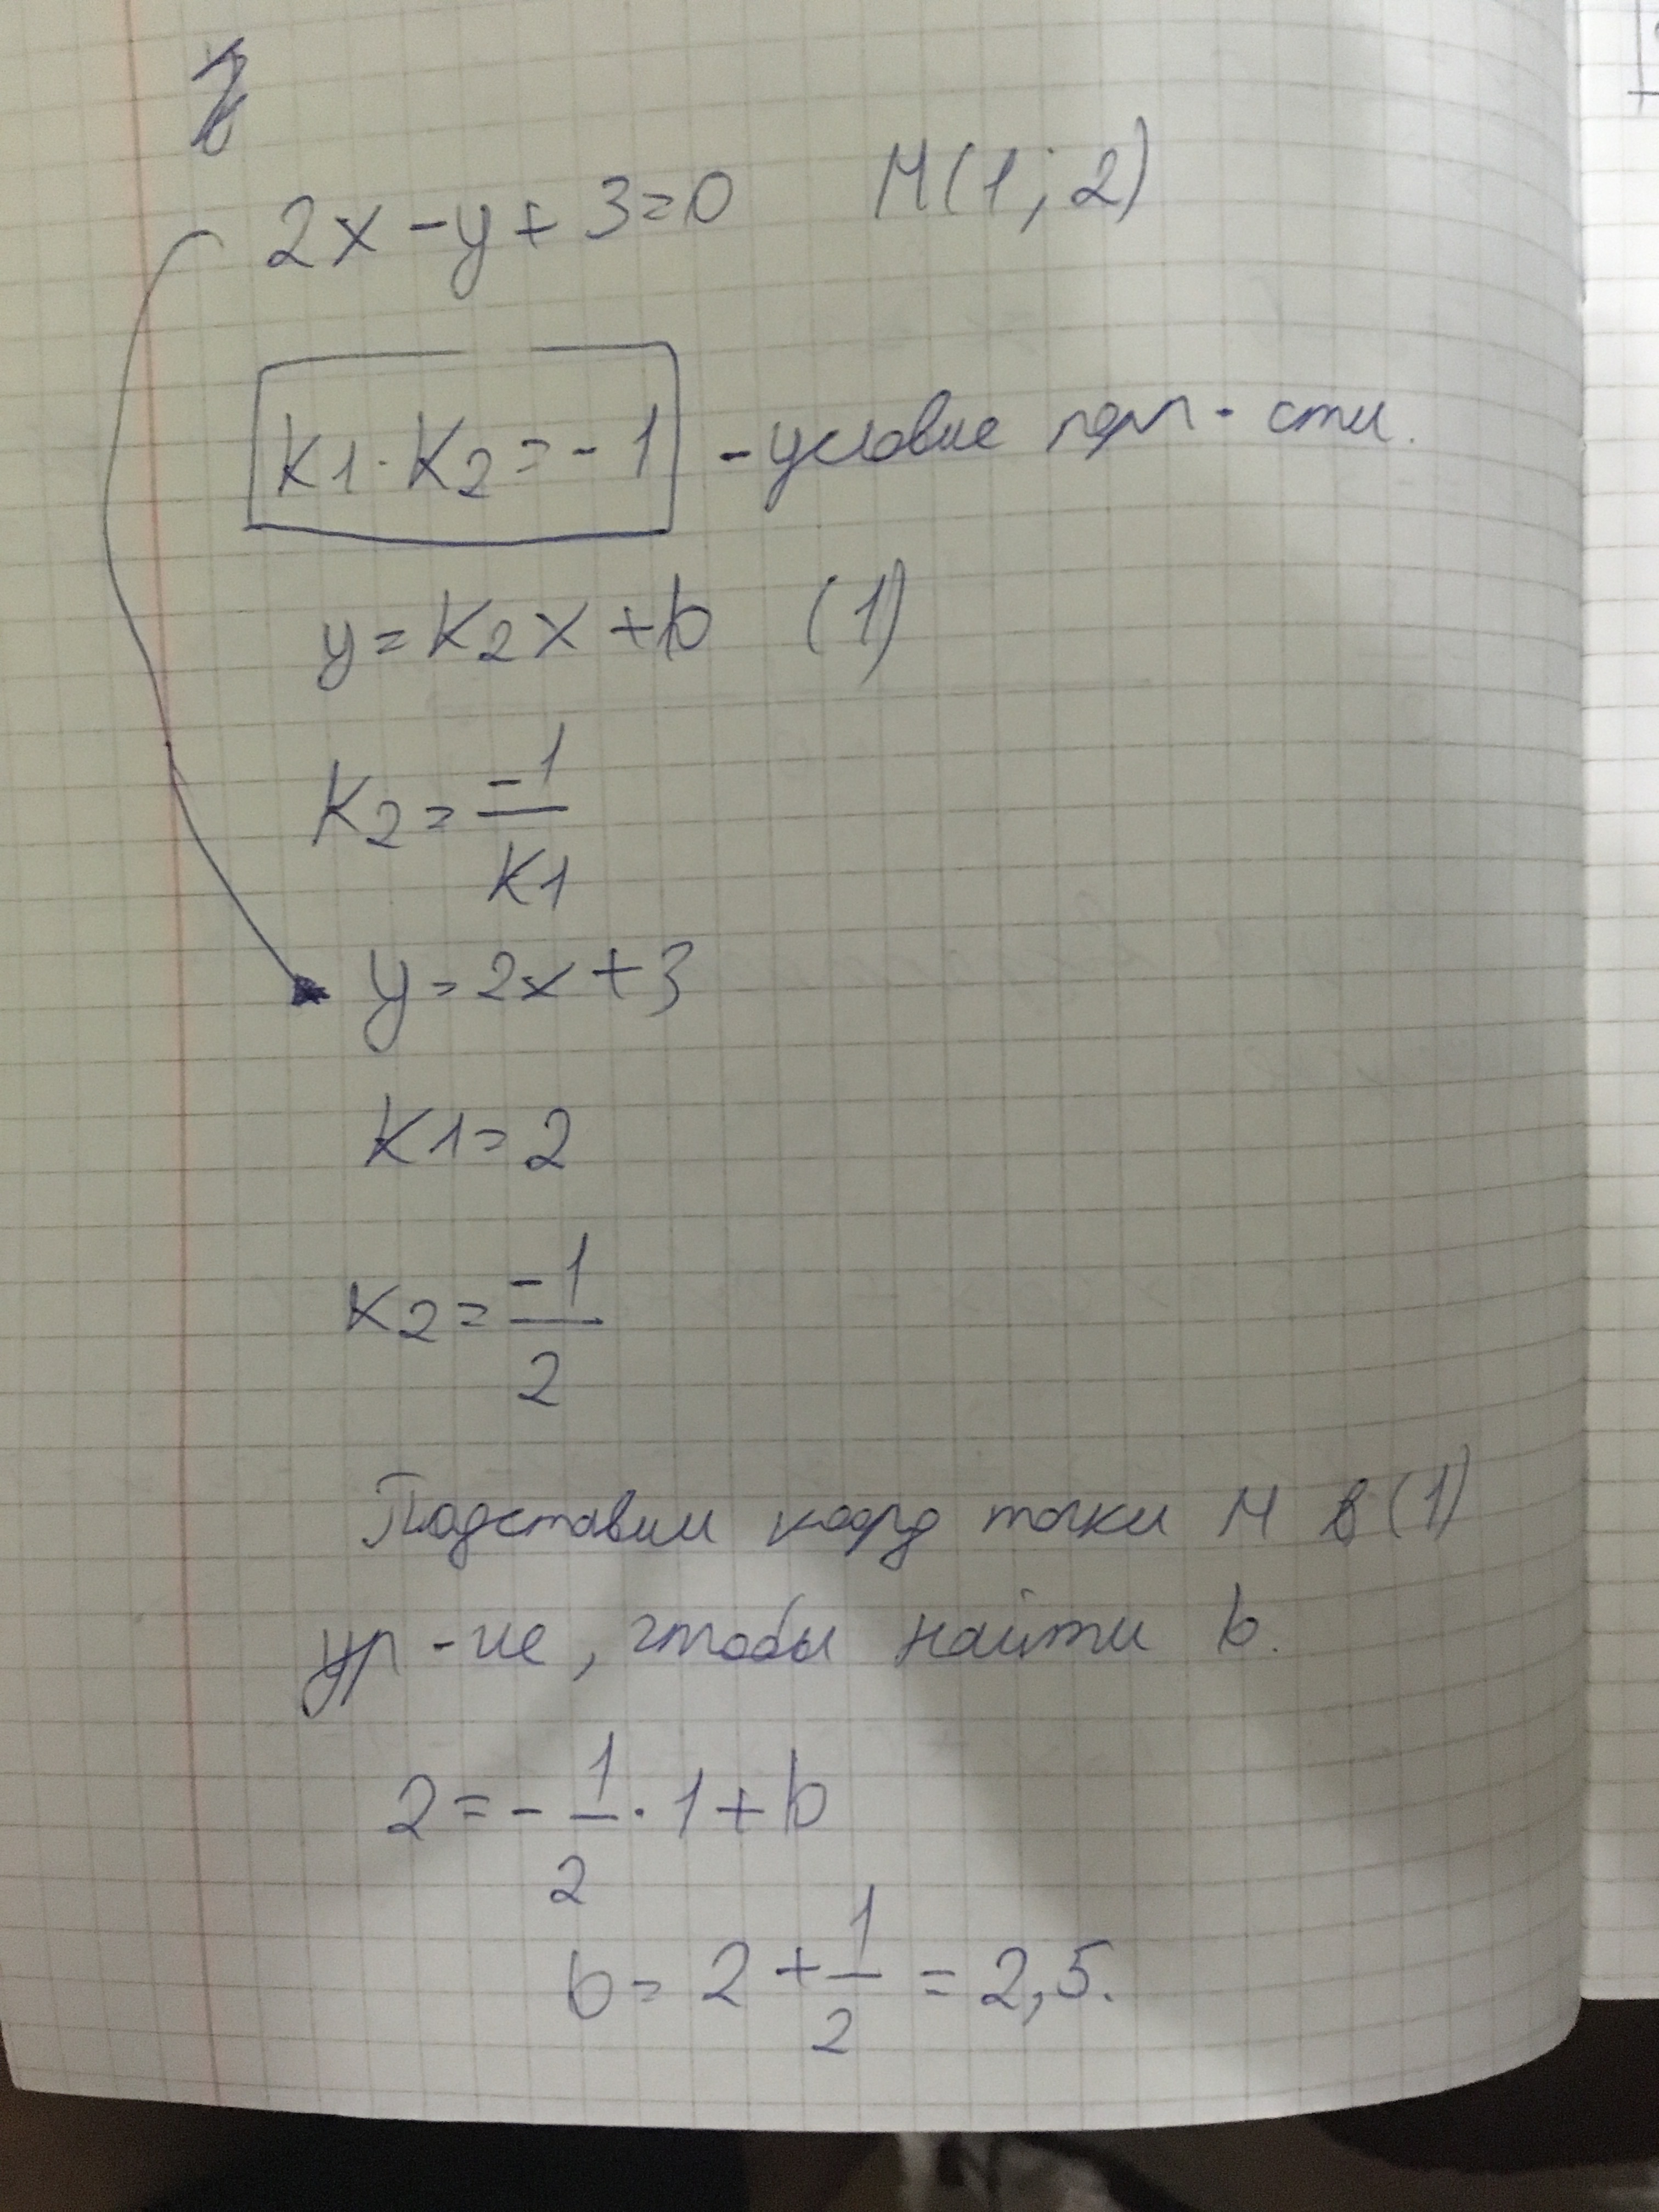 2x - y + 3 = 0 M(1; 2)
K1 · K2 = -1 - условие перп-сти.
y = K2x + b (1)
K2 = -1/K1
y = 2x + 3
K1 = 2
K2 = -1/2
Подставим коорд точки M в (1)
ур-ие, чтобы найти b.
2 = - 1/2 · 1 + b
b = 2 + 1/2 = 2,5.